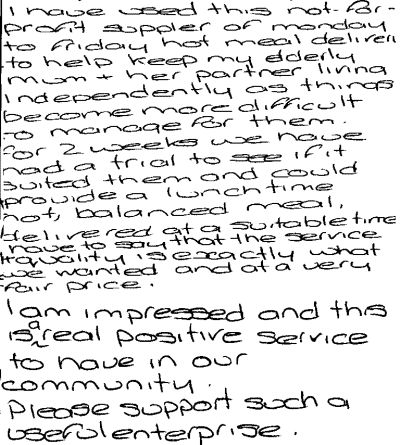 I have used this not-for-
profit suppler of monday
to friday hot meal deliveri
to help keep my elderly
mum + her partner living
independently as things
become more difficult
to manage for them.
For 2 weeks we have
had a trial to see if it
suited them and could
provide a lunch time
hot, balanced meal,
delivered at a suitable time
have to say that the service
+ quality is exactly what
we wanted and at a very
fair price.
I am impressed and this
is a real positive service
to have in our
community.
Please support such a
useful enterprise.